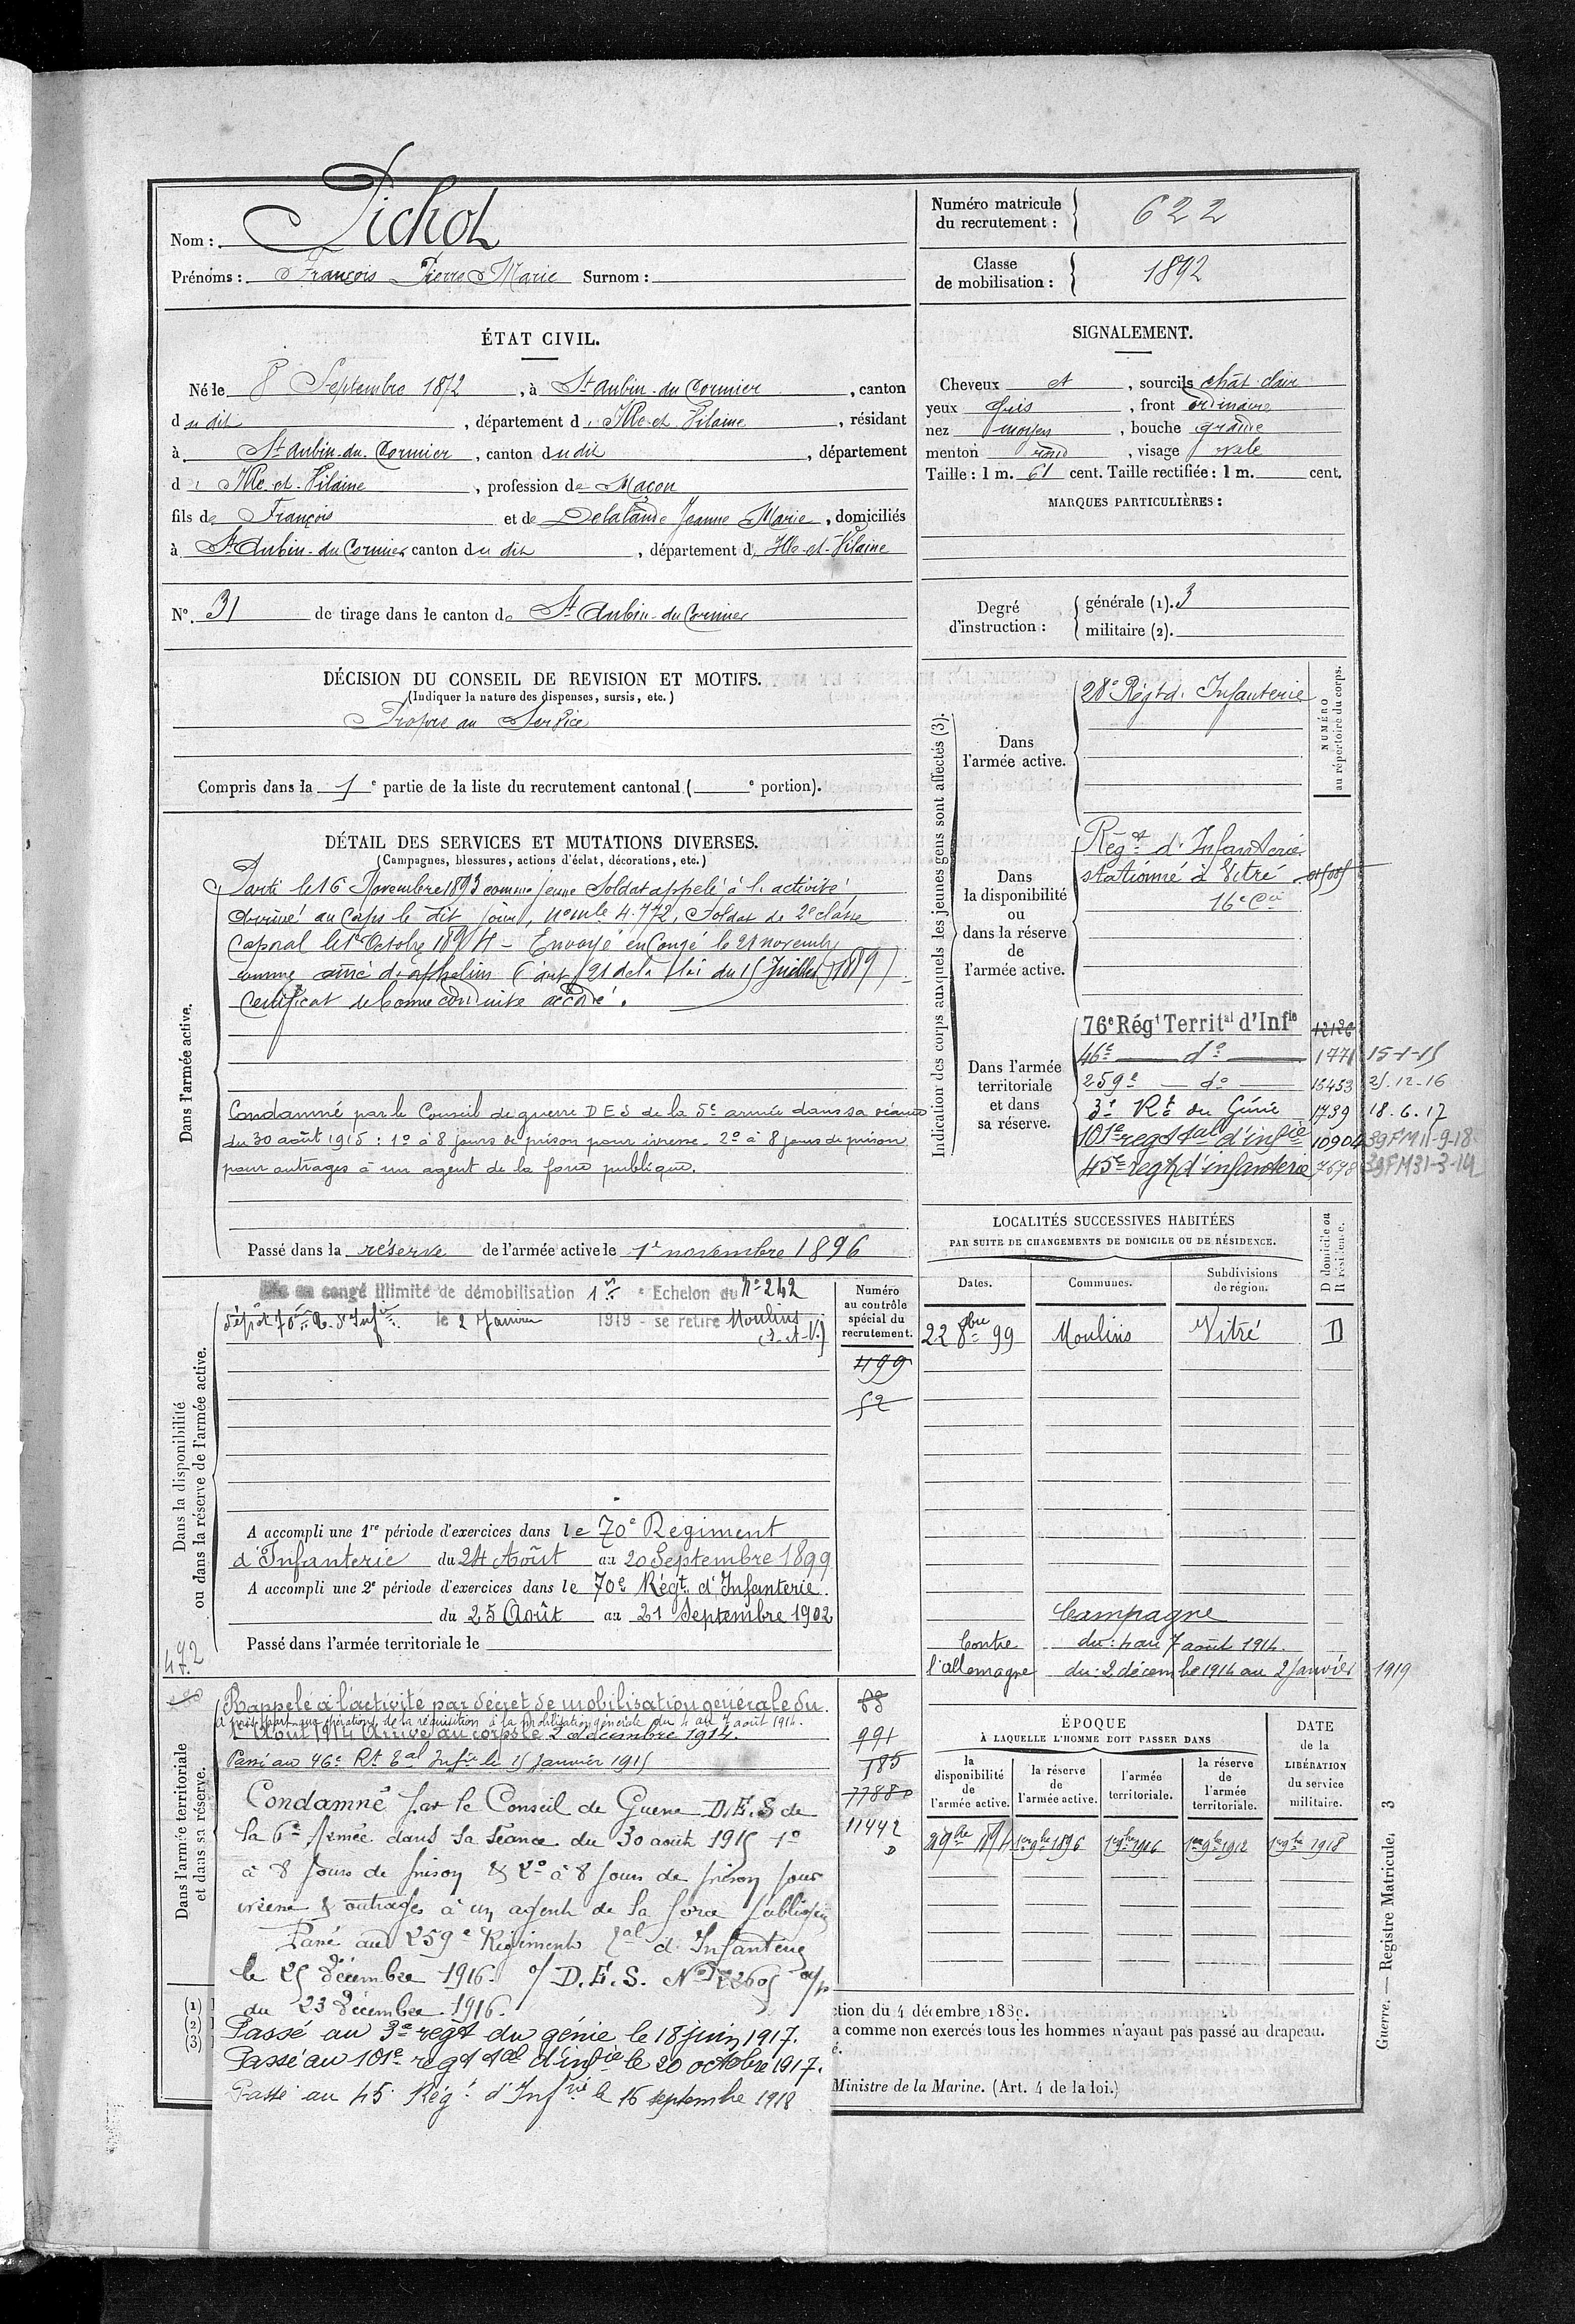 Nom : Pichot
Prénoms : François Pierre Marie Surnom :
Numéro matricule du recrutement : 622
Classe de mobilisation : 1892
ÉTAT CIVIL.
Né le 8 Septembre 1872, à St Aubin-du-Cormier, canton
dudit, département d'Ille-et-Vilaine, résidant
à St Aubin-du-Cormier, canton dudit, département
d'Ille-et-Vilaine, profession de Maçon
fils de François et de Delalande Jeanne Marie, domiciliés
à St Aubin-du-Cormier canton du dit, département d'Ille-et-Vilaine
N° 31 de tirage dans le canton de St Aubin-du-Cormier
SIGNALEMENT.
Cheveux et, sourcils chât clair
yeux gris, front ordinaire
nez moyen, bouche grande
menton rond, visage ovale
Taille : 1 m. 61 cent. Taille rectifiée : 1 m. cent.
MARQUES PARTICULIÈRES :
Degré d'instruction : générale (1). 3
militaire (2).
DÉCISION DU CONSEIL DE REVISION ET MOTIFS.
(Indiquer la nature des dispenses, sursis, etc.)
Propre au Service
Compris dans la 1e partie de la liste du recrutement cantonal ( e portion).
DÉTAIL DES SERVICES ET MUTATIONS DIVERSES.
(Campagnes, blessures, actions d'éclat, décorations, etc.)
Dans l'armée active.
Parti le 16 Novembre 1893 comme jeune Soldat appelé à l'activité,
Arrivé au Corps le dit jour, n° mle 4.772, Soldat de 2e classe
Caporal le 1er Octobre 1894 - Envoyé en Congé le 21 novembre
comme aîné d'orphelins (art 21 de la loi du 15 Juillet 1889)
Certificat de bonne conduite accordé.
Condamné par le Conseil de guerre DES de la 5e armée dans sa séance
du 30 août 1915 : 1° à 8 jours de prison pour ivresse - 2° à 8 jours de prison
pour outrages à un agent de la force publique.
Passé dans la réserve de l'armée active le 1er novembre 1896
Indication des corps auxquels les jeunes gens sont affectés (3).
NUMÉRO au répertoire du corps.
Dans l'armée active.
28e Régt d'Infanterie
Dans la disponibilité ou dans la réserve de l'armée active.
Régt d'Infanterie
stationné à Vitré
16e Cie
Dans l'armée territoriale et dans sa réserve.
76e Régt Territal d'Infie 12126
46e — do — 1771 15-1-15
259e — do — 15453 25-12-16
3e Rt du Génie 1739 18.6.17
101e regt tal d'infie 10904 39FM11-9-18
45e regt d'infanterie 7678 39FM31-3-19
LOCALITÉS SUCCESSIVES HABITÉES
PAR SUITE DE CHANGEMENTS DE DOMICILE OU DE RÉSIDENCE.
Dates. Communes. Subdivisions de région. D domicile ou R résidence.
22 8bre 99 Moulins Vitré D
Campagne
Contre du : 4 au 7 août 1914.
l'allemagne du : 2 décembre 1914 au 2 Janvier 1919
Dans la disponibilité ou dans la réserve de l'armée active.
Mis en congé illimité de démobilisation 1er Echelon du N° 242
dépôt 70e R. d'Infie le 2 Janvier 1919 - se retire Moulins
(I.-et-V.)
Numéro au contrôle spécial du recrutement.
499
52
A accompli une 1re période d'exercices dans le 70e Régiment
d'Infanterie du 24 Août au 20 Septembre 1899
A accompli une 2e période d'exercices dans le 70e Régt d'Infanterie
du 25 Août au 21 Septembre 1902
Passé dans l'armée territoriale le
472
Dans l'armée territoriale et dans sa réserve.
Rappelé à l'activité par décret de mobilisation générale du
A pris part aux opérations de la réquisition à la mobilisation générale du 4 au 7 août 1914.
1er Août 1914 Arrivé au corps le 2 décembre 1914.
Passé au 46e Rt Tal Infie le 15 Janvier 1915
Condamné par le Conseil de Guerre D.E.S de
la 6e Armée dans sa séance du 30 août 1915 1°
à 8 jours de prison & 2° à 8 jours de prison pour
ivresse & outrages à un agent de la force publique
Passé au 259e Régiment Tal d'Infanterie
le 25 décembre 1916. D.E.S. N° 22605
du 23 décembre 1916.
Passé au 3e regt du génie le 18 juin 1917.
Passé au 101e regt tal d'infie le 20 octobre 1917.
Passé au 45 Régt d'Infrie le 15 septembre 1918
88
991
185
77880
11442
D
ÉPOQUE
À LAQUELLE L'HOMME DOIT PASSER DANS
la disponibilité de l'armée active. la réserve de l'armée active. l'armée territoriale. la réserve de l'armée territoriale.
DATE de la LIBÉRATION du service militaire.
1er 9bre 1896 1er 9bre 1906 1er 9bre 1912 1er 9bre 1918
(1)
(2)
(3)
ction du 4 décembre 1889.
a comme non exercés tous les hommes n'ayant pas passé au drapeau.
é.
Ministre de la Marine. (Art. 4 de la loi.)
Guerre. — Registre Matricule. 3